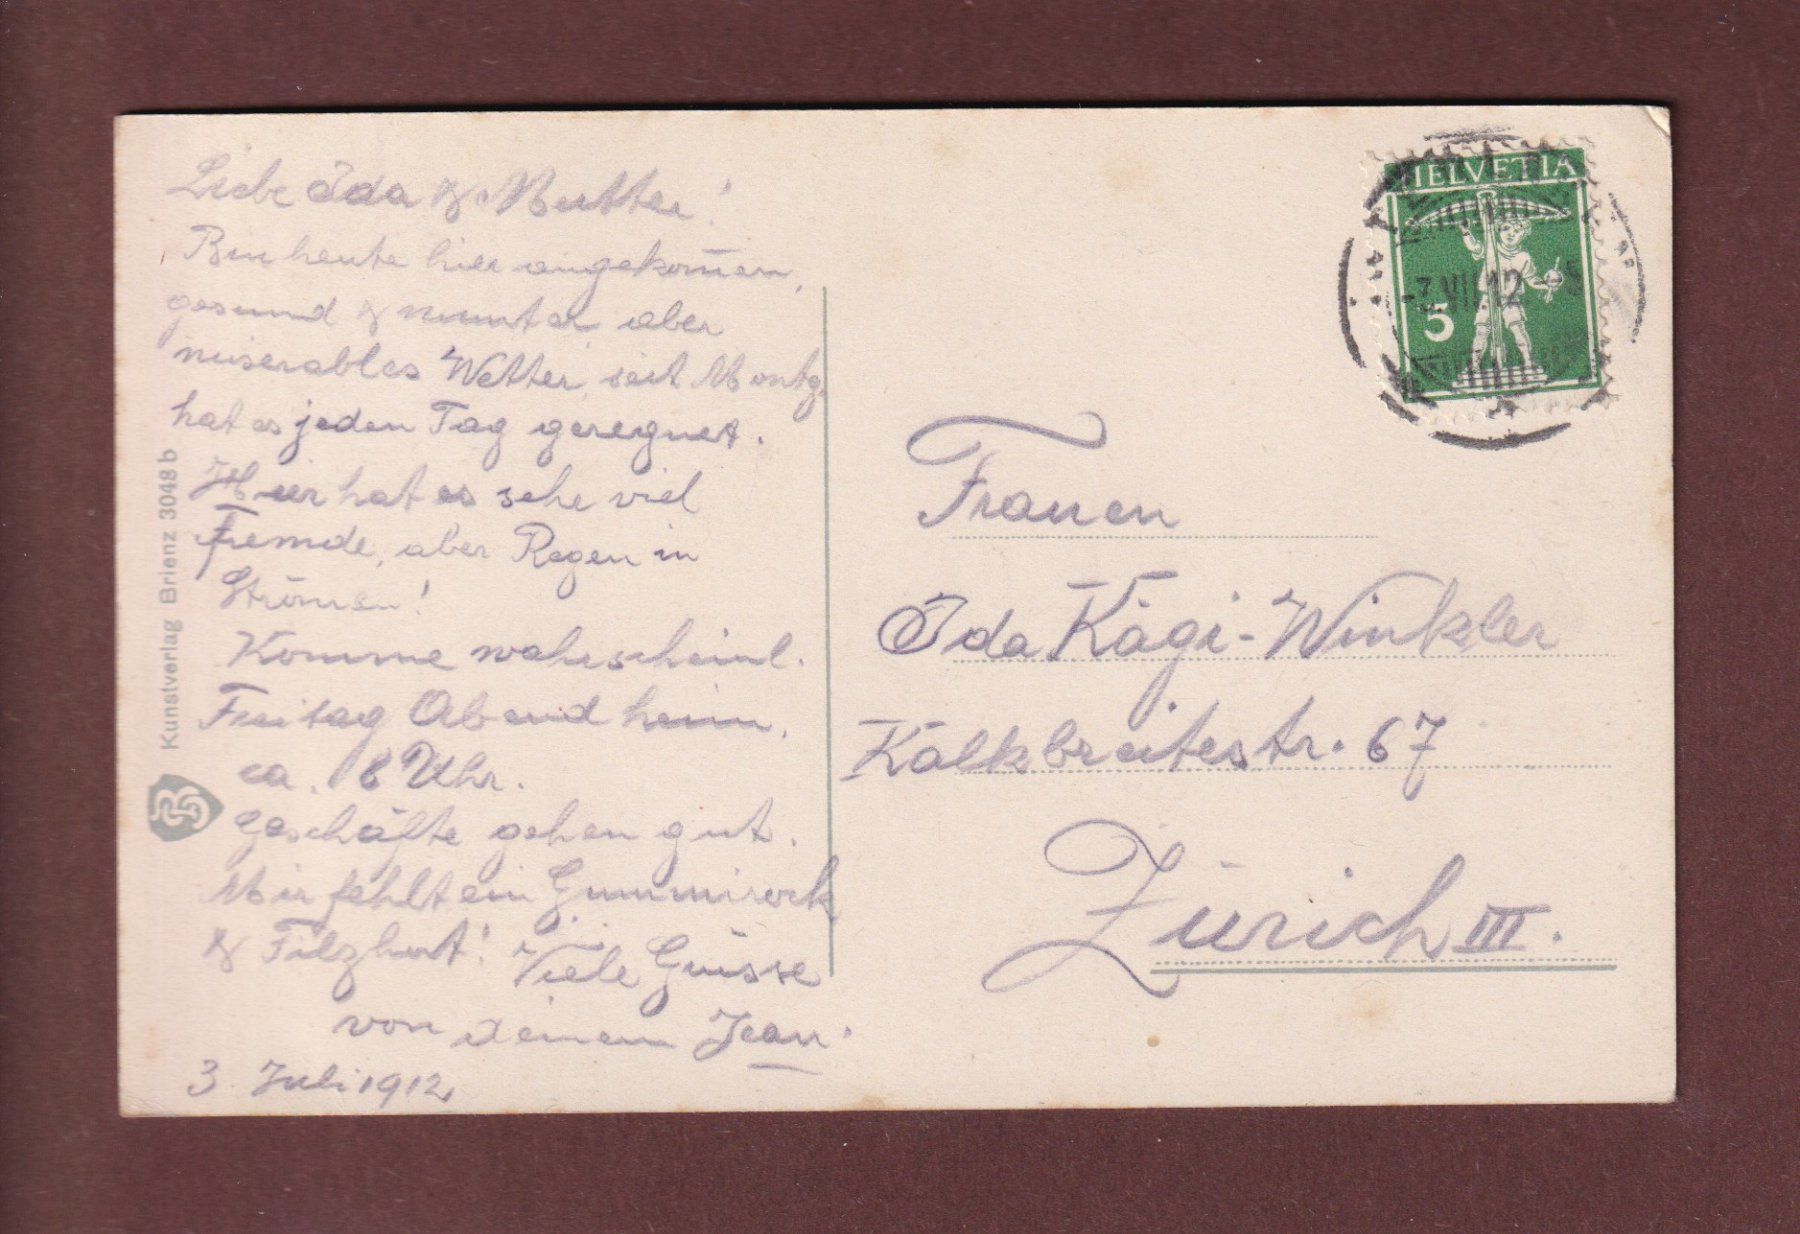 Liebe Ida & Mutter!
Bin heute hier angekom̄en,
gesund & munter aber
miserables Wetter, seit Montg.
hat es jeden Tag geregnet.
Hier hat es sehr viel
Fremde, aber Regen in
Strömen!
Komme wahrscheinl.
Freitag Abend heim,
ca. 8 Uhr.
Geschäfte gehen gut.
Mir fehlt ein Gummirock
& Filzhut! Viele Grüsse
von deinem Jean.
3 Juli 1912
Kunstverlag Brienz 3048 b
HELVETIA
5
-3.VII.12 - 5
Frauen
Ida Kägi-Winkler
Kalkbreitestr. 67
Zürich III.